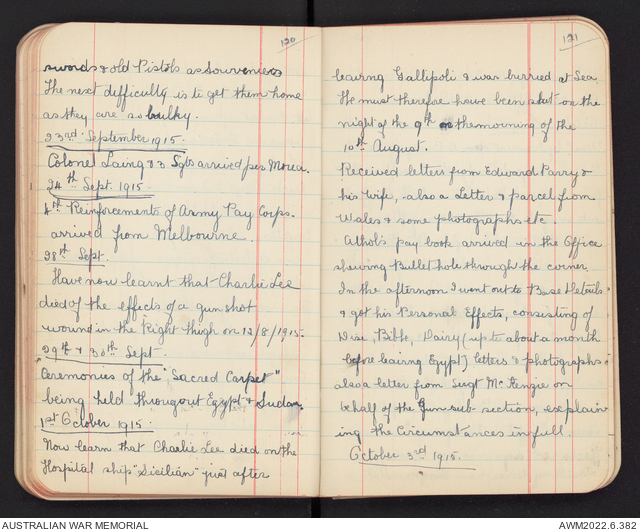 120
swords & old Pistols as Souveniers
The next difficulty is to get them home
as they are so bulky.
23rd September 1915.
Colonel Laing & 3 Sgts arrived per Morea.
24th Sept. 1915.
4th Reinforcements of Army Pay Corps.
arrived from Melbourne.
28th Sept.
Have now learnt that Charlie Lee
died of the effects of a gun shot
wound in the Right thigh on 12/8/1915.
29th & 30th Sept.
Ceremonies of the "Sacred Carpet"
being held througout Egypt & Sudan.
1st October 1915.
Now learn that Charlie Lee died on the
Hospital ship "Sicilian" just after
121
leaving Gallipoli & was burried at Sea
He must therefore have been shot on the
night of the 9th or the morning of the
10th August.
Received letters from Edward Parry &
his wife, also a Letter & parcel from
Wales & some photographs etc.
Athol's pay book arrived in the Office
shewing Bullet hole through the corner.
In the afternoon I went out to Base Details
& got his Personal Effects, consisting of
Disc, Bible, Dairy (up to about a month
before leaving Egypt) letters & photographs,
also a letter from Sergt McKenzie on
behalf of the Gun sub section, explain
ing the Circumstances in full.
October 3rd 1915.
AUSTRALIAN WAR MEMORIAL
AWM2022.6.382